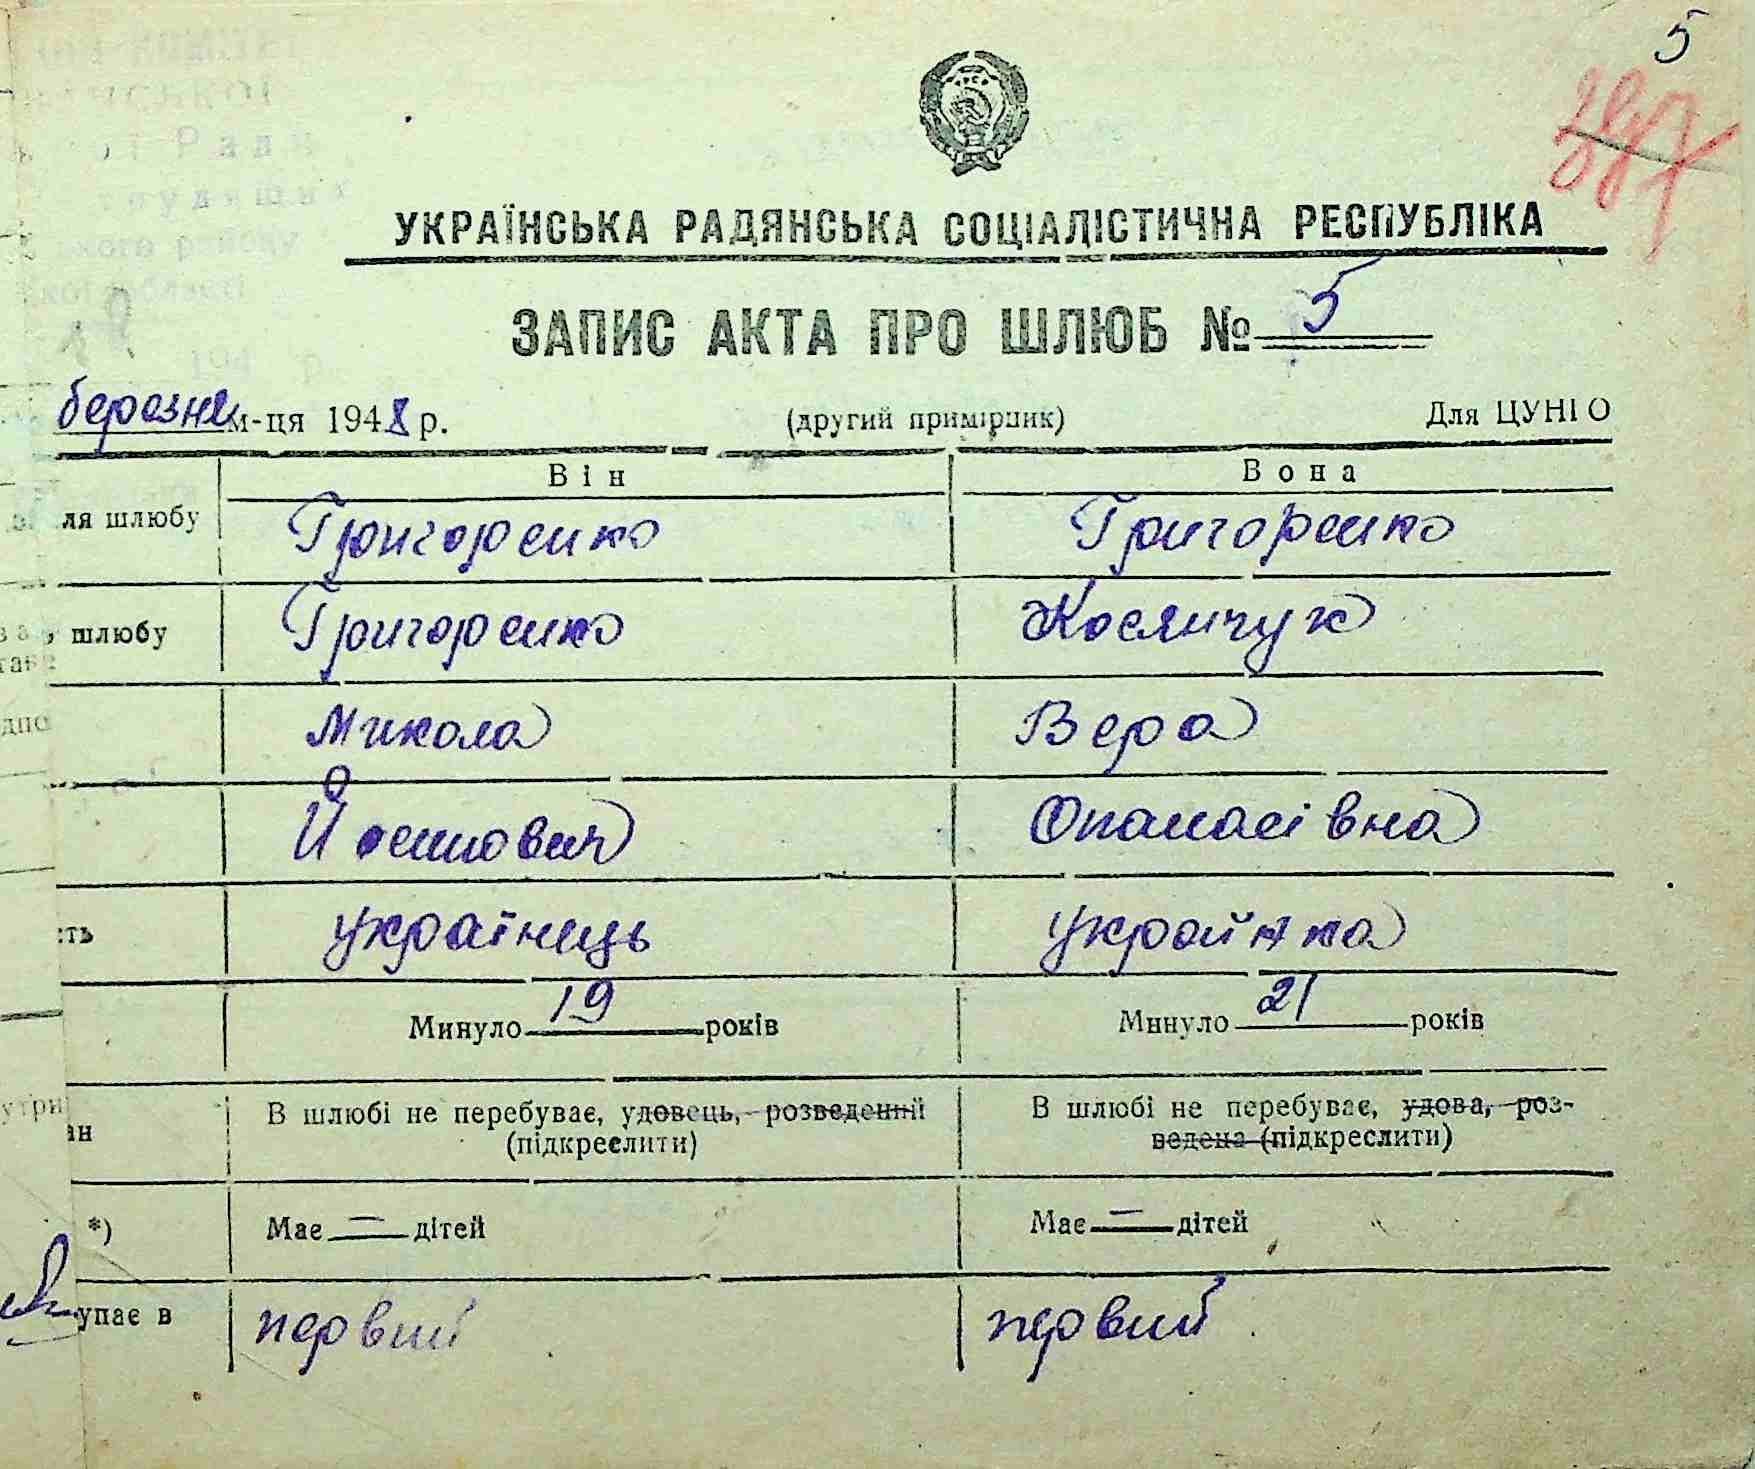 5
УКРАЇНСЬКА РАДЯНСЬКА СОЦІАЛІСТИЧНА РЕСПУБЛІКА
ЗАПИС АКТА ПРО ШЛЮБ № 5
березня м-ця 1948 р. (другий примірник) Для ЦУНГО
Він Вона
ля шлюбу Григоренко Григоренко
шлюбу Григоренко Косянчук
Микола Вера
Йосипович Опанасівна
сть українець украйнка
Минуло 19 років Минуло 21 років
В шлюбі не перебуває, удовець, розведений В шлюбі не перебуває, удова, роз-
ан (підкреслити) ведена (підкреслити)
*) Має — дітей Має — дітей
упає в первий первий